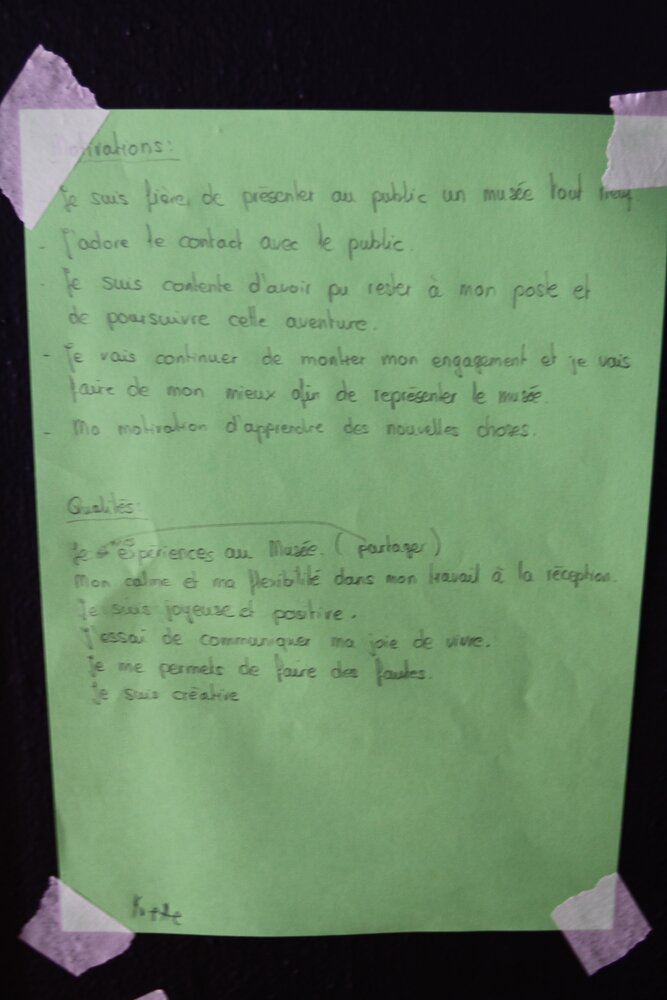 Motivations:
Je suis fière de présenter au public un musée tout neuf
- J'adore le contact avec le public.
- Je suis contente d'avoir pu rester à mon poste et
de poursuivre cette aventure.
- Je vais continuer de montrer mon engagement et je vais
faire de mon mieux afin de représenter le musée.
- Ma motivation d'apprendre des nouvelles choses.
Qualités:
Je expériences au Musée. (partager)
Mon calme et ma flexibilité dans mon travail à la réception.
Je suis joyeuse et positive.
J'essai de communiquer ma joie de vivre.
Je me permets de faire des fautes.
Je suis créative